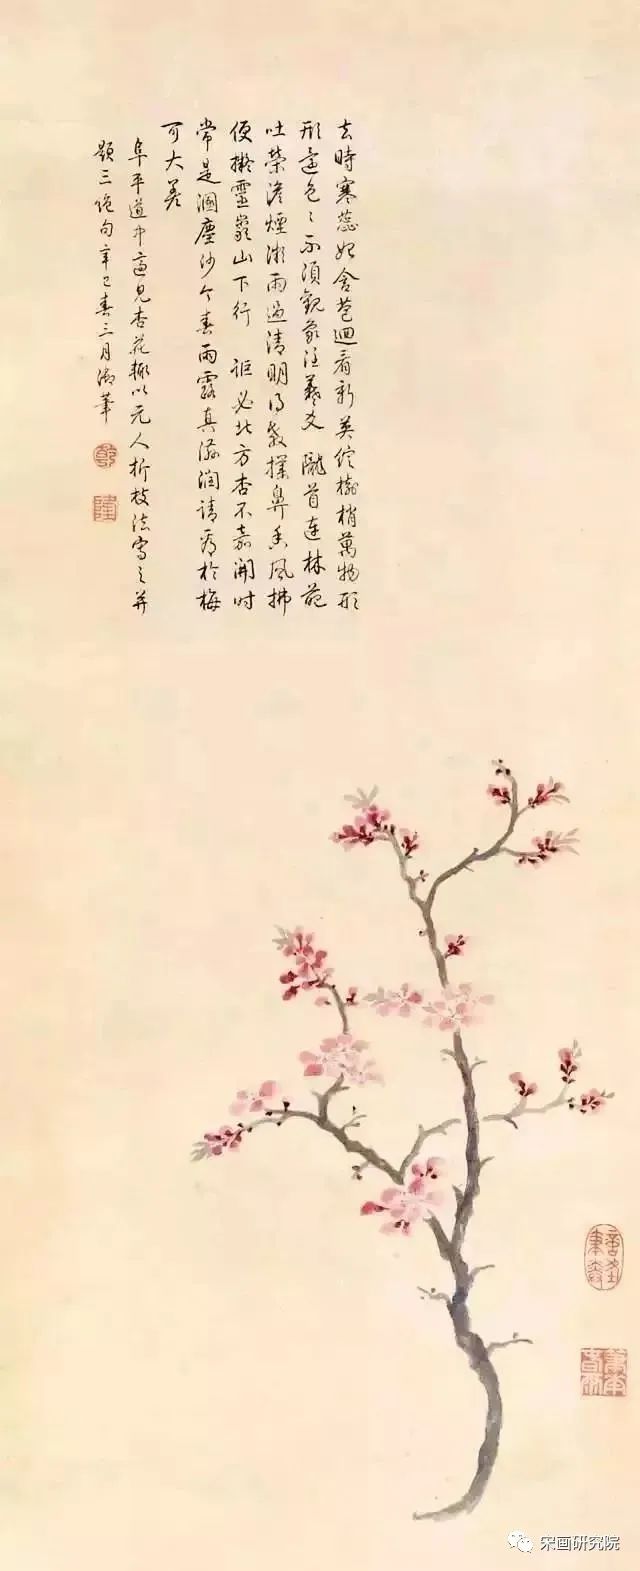 去時寒蕊始含苞迴看新英綻樹梢萬物形
形還色々不須觀象注羲爻 隴首連林葩
吐榮澹煙微雨過清明得教撲鼻香風拂
便擬靈巖山下行 詎必北方杏不嘉開時
常是溷塵沙今春雨露真滋潤請看於梅
可大差
阜平道中適見杏花輒以元人折枝法寫之并
題三絕句辛巳春三月御筆
乾
隆
宋画研究院